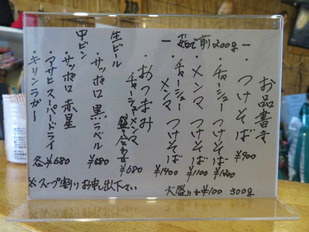 お品書き
・つけそば ¥900
・チャーシューつけそば ¥1200
・メンマつけそば ¥1100
・チャーシューメンマつけそば ¥1400
― 茹で前200g ―
おつまみ
チャーシューメンマ盛合わせ ¥680
生ビール
・サッポロ黒ラベル ¥680
中ビン
・サッポロ赤星
・アサヒスーパードライ
・キリンラガー
各¥680
大盛り+¥100 300g
※スープ割りお申し出下さい